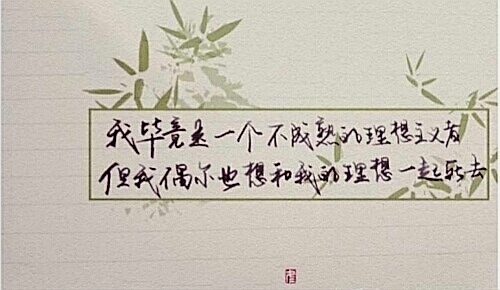 我毕竟是一个不成熟的理想主义者
但我偶尔也想和我的理想一起死去